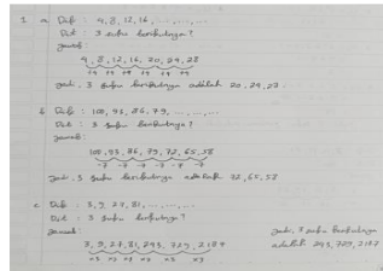 1 a Dik : 4, 8, 12, 16, ..., ..., ...
Dit : 3 suku berikutnya ?
Jawab :
4, 8, 12, 16, 20, 24, 28
+4 +4 +4 +4 +4 +4
Jadi, 3 suku berikutnya adalah 20, 24, 28
b Dik : 100, 93, 86, 79, ..., ..., ...
Dit : 3 suku berikutnya ?
Jawab :
100, 93, 86, 79, 72, 65, 58
-7 -7 -7 -7 -7 -7
Jadi, 3 suku berikutnya adalah 72, 65, 58
c Dik : 3, 9, 27, 81, ..., ..., ...
Dit : 3 suku berikutnya ?
Jawab :
3, 9, 27, 81, 243, 729, 2187
×3 ×3 ×3 ×3 ×3 ×3
Jadi, 3 suku berikutnya
adalah 243, 729, 2187